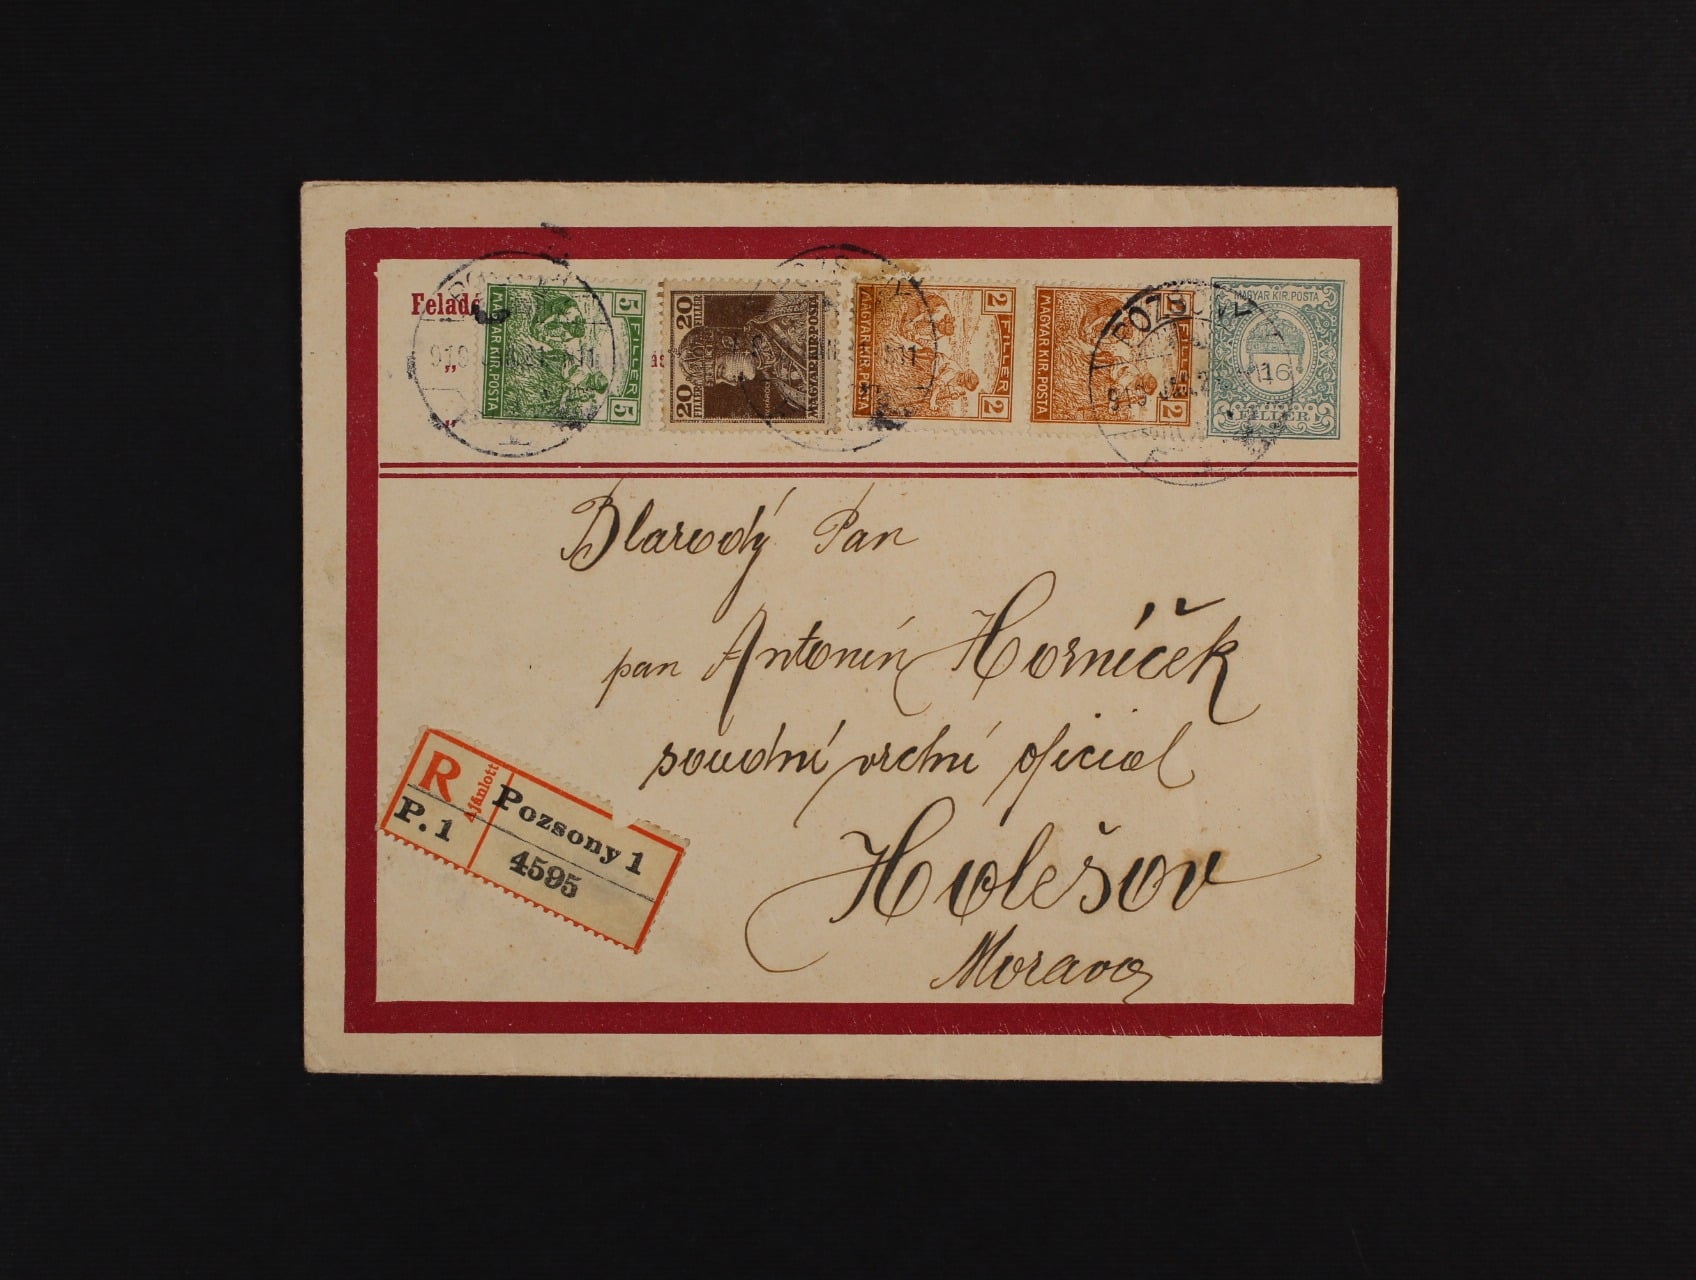 Felad
5 FILLER 5
MAGYAR KIR. POSTA
20 FILLER
20 FILLER
MAGYAR KIR. POSTA
KÁROLY
2 FILLER 2
MAGYAR KIR. POSTA
FILLER 2
MAGYAR KIR. POSTA
MAGYAR KIR. POSTA
16
FILLER
POZSONY
Blarodý Pan
pan Antonín Horníček
soudní vrchní oficial
Holešov
Morava
R Ajánlott
P. 1
Pozsony 1
4595